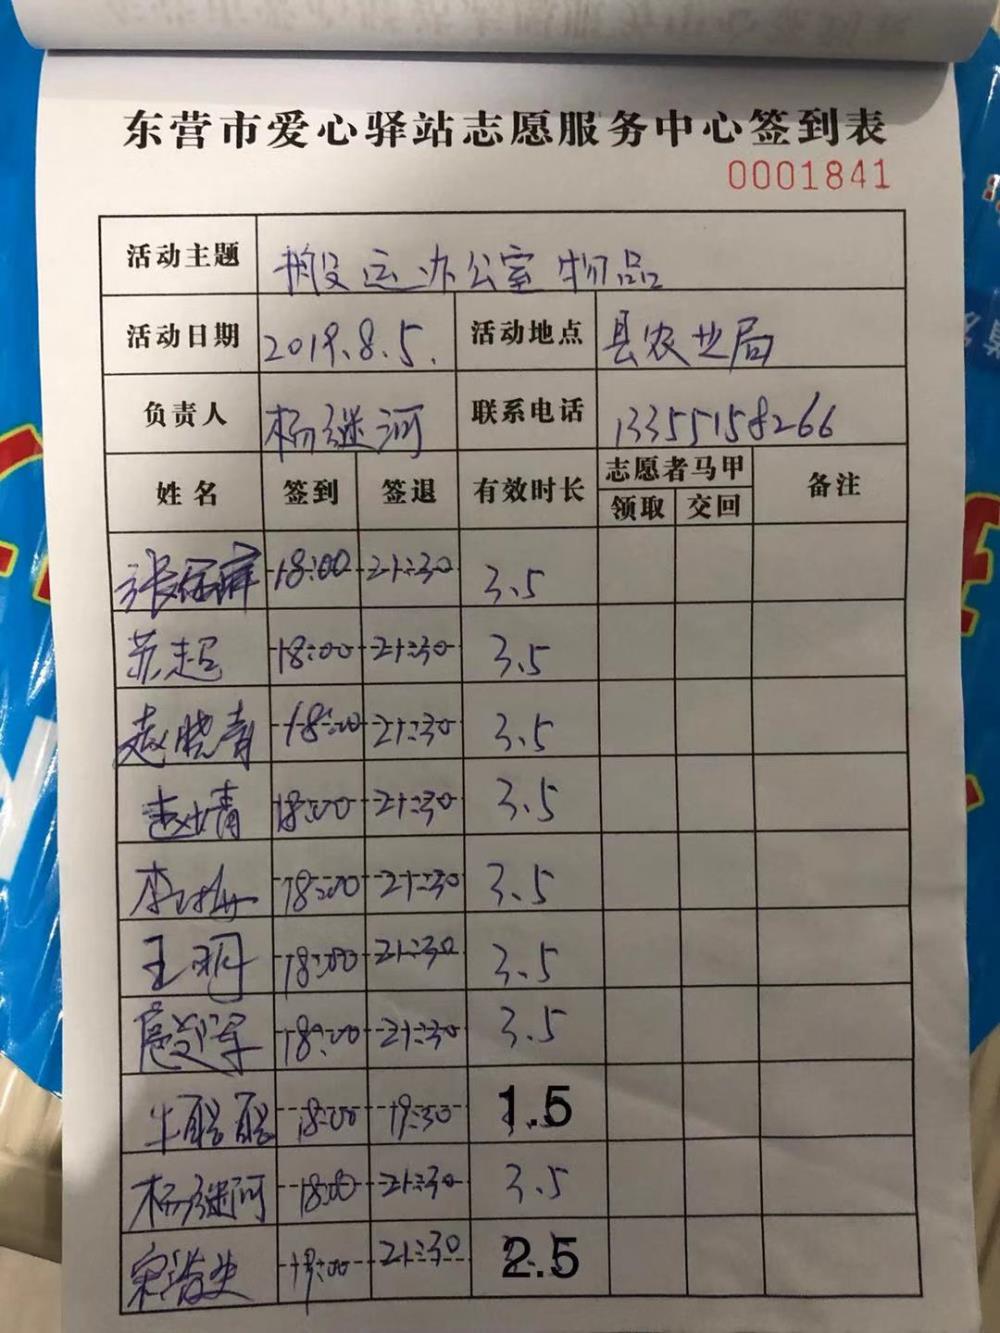 东营市爱心驿站志愿服务中心签到表
0001841
活动主题 搬运办公室物品
活动日期 2019.8.5. 活动地点 县农业局
负责人 杨继河 联系电话 13355158266
姓名 签到 签退 有效时长 志愿者马甲 备注
领取 交回
18:00 21:30 3.5
苏超 18:00 21:30 3.5
赵晓青 18:00 21:30 3.5
赵婧 18:00 21:30 3.5
18:00 21:30 3.5
王明 18:00 21:30 3.5
18:00 21:30 3.5
牛聪聪 18:00 19:30 1.5
杨继河 18:00 21:30 3.5
19:00 21:30 2.5